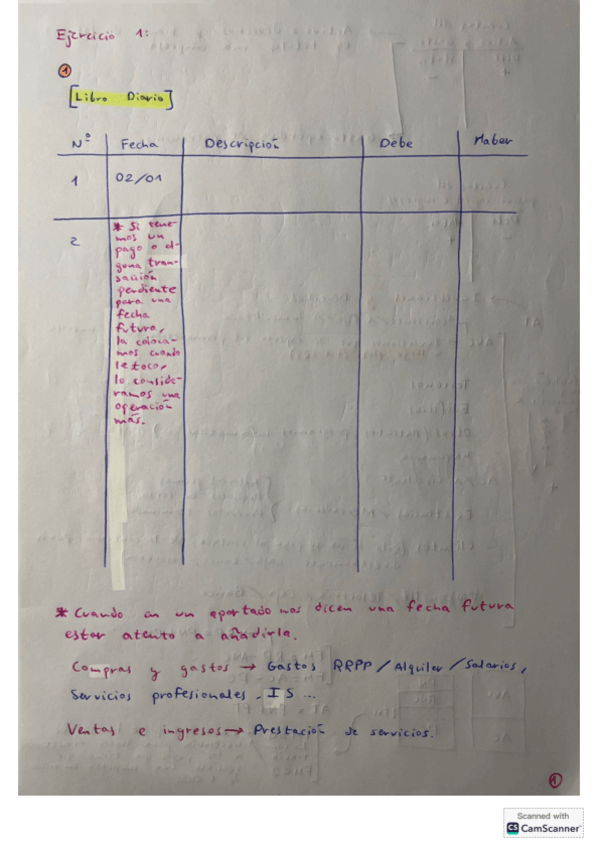 Ejercicio 1:
1
[Libro Diario]
Nº Fecha Descripción Debe Haber
1 02/01
2
* Si tene-
mos un
pago o al-
guna tran-
sacción
pendiente
para una
fecha
futura,
la coloca-
mos cuando
le toca,
lo conside-
ramos una
operación
más.
* Cuando en un apartado nos dicen una fecha futura
estar atento a añadirla.
Compras y gastos → Gastos RRPP / Alquiler / Salarios,
Servicios profesionales. IS ...
Ventas e ingresos → Prestación de servicios.
1
Scanned with
CS CamScanner